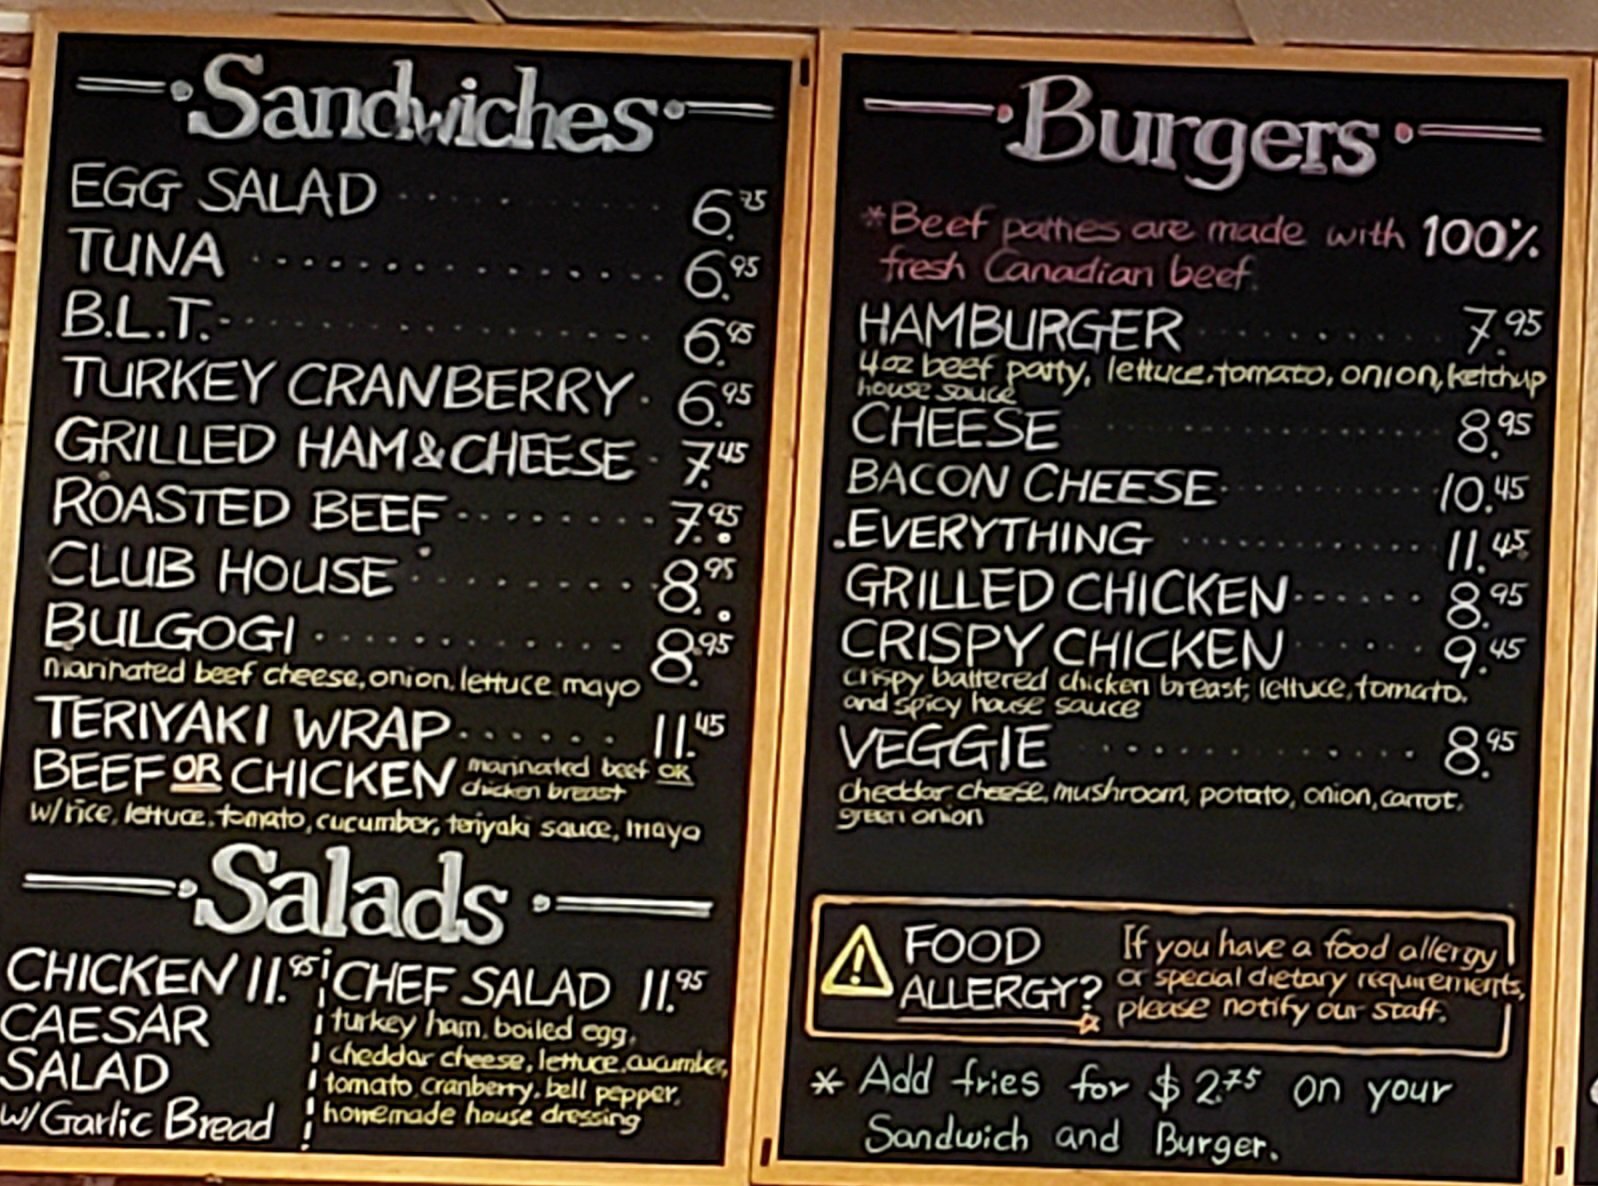 Sandwiches
EGG SALAD 6.75
TUNA 6.95
B.L.T. 6.95
TURKEY CRANBERRY 6.95
GRILLED HAM & CHEESE 7.45
ROASTED BEEF 7.95
CLUB HOUSE 8.95
BULGOGI 8.95
marinated beef cheese, onion, lettuce mayo
TERIYAKI WRAP 11.45
BEEF OR CHICKEN marinated beef OR
chicken breast
w/rice, lettuce, tomato, cucumber, teriyaki sauce, mayo
Salads
CHICKEN 11.95
CAESAR
SALAD
w/Garlic Bread
CHEF SALAD 11.95
turkey ham, boiled egg,
cheddar cheese, lettuce, cucumber,
tomato, cranberry, bell pepper,
homemade house dressing
Burgers
*Beef patties are made with 100%
fresh Canadian beef.
HAMBURGER 7.95
4oz beef patty, lettuce, tomato, onion, ketchup
house sauce
CHEESE 8.95
BACON CHEESE 10.45
EVERYTHING 11.45
GRILLED CHICKEN 8.95
CRISPY CHICKEN 9.45
crispy battered chicken breast, lettuce, tomato,
and spicy house sauce
VEGGIE 8.95
cheddar cheese, mushroom, potato, onion, carrot,
green onion
FOOD
ALLERGY?
If you have a food allergy
or special dietary requirements,
please notify our staff.
* Add fries for $2.75 on your
Sandwich and Burger.